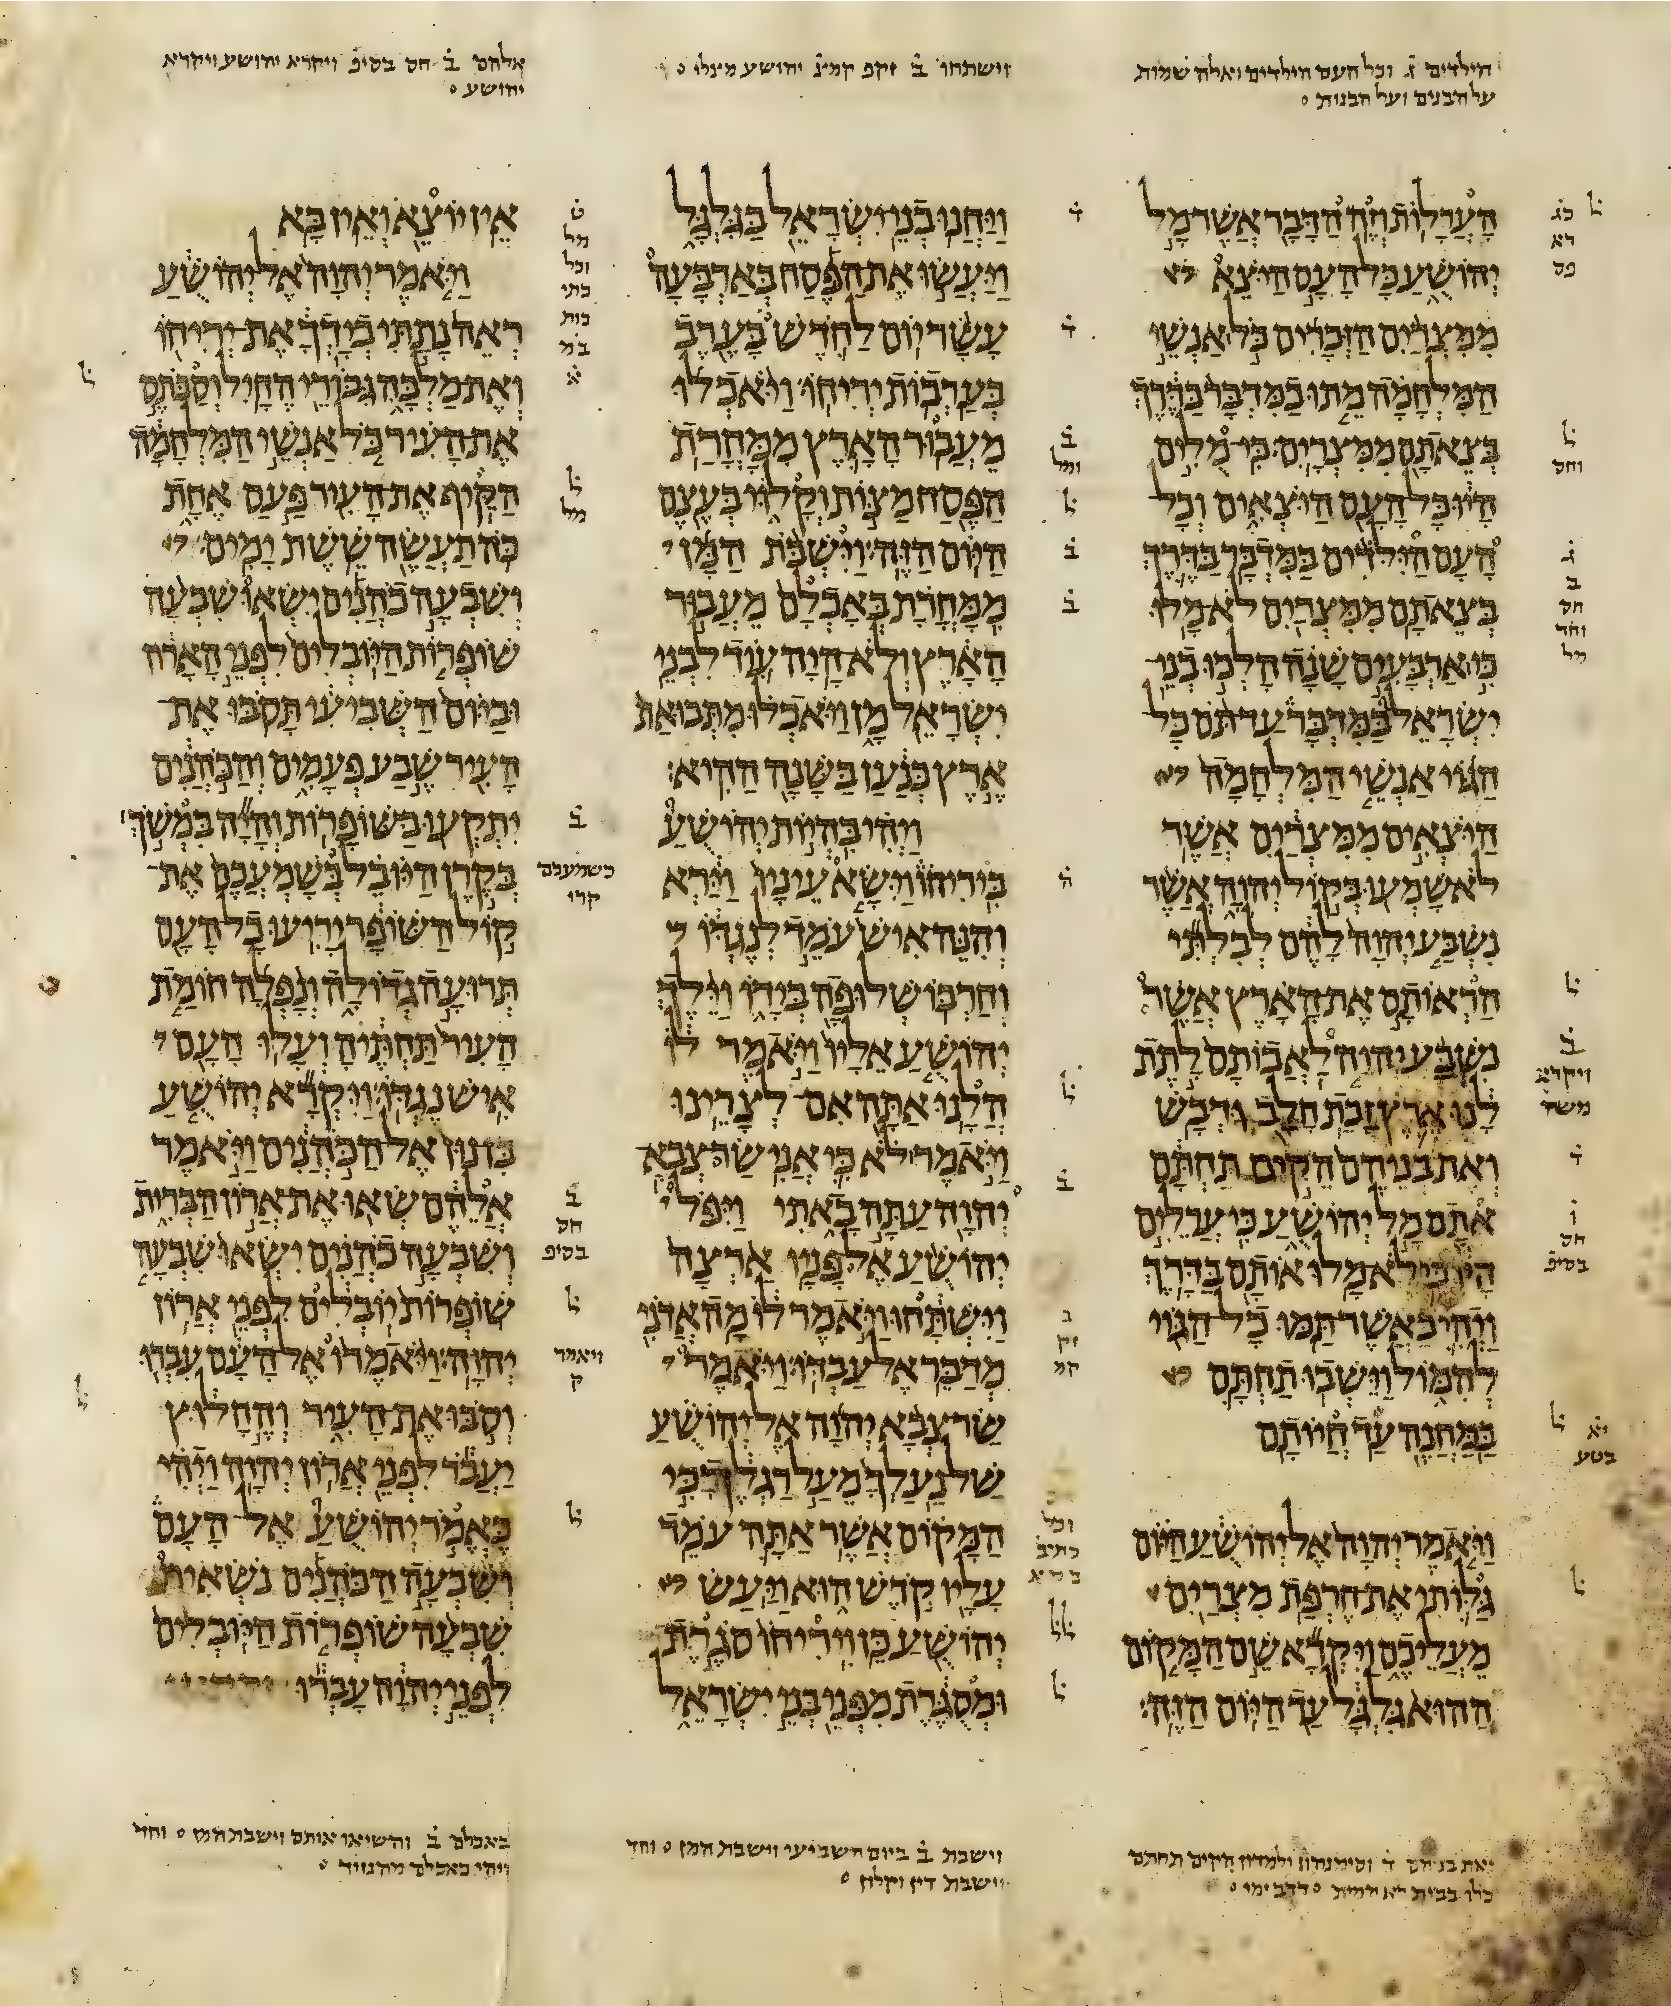 הילדים ג וכל העם הילדים ואלה שמות
על הבנים ועל הבנות
וישתחו ב זקפ קמיצ יהושע מיצלי
אלהם ב חס בסיפ ויקרא יהושע ויקרא
יהושע
הערלות וזה הדבר אשר מל
יהושע כל העם היצא
ממצרים הזכרים כל אנשי
המלחמה מתו במדבר בדרך
בצאתם ממצרים כי מלים
היו כל העם היצאים וכל
העם הילדים במדבר בדרך
בצאתם ממצרים לא מלו
כי ארבעים שנה הלכו בני
ישראל במדבר עד תם כל
הגוי אנשי המלחמה
היצאים ממצרים אשר
לא שמעו בקול יהוה אשר
נשבע יהוה להם לבלתי
הראותם את הארץ אשר
נשבע יהוה לאבותם לתת
לנו ארץ זבת חלב ודבש
ואת בניהם הקים תחתם
אתם מל יהושע כי ערלים
היו כי לא מלו אותם בדרך
ויהי כאשר תמו כל הגוי
להמול וישבו תחתם
במחנה עד חיותם
ויאמר יהוה אל יהושע היום
גלותי את חרפת מצרים
מעליכם ויקרא שם המקום
ההוא גלגל עד היום הזה
ויחנו בני ישראל בגלגל
ויעשו את הפסח בארבעה
עשר יום לחדש בערב
בערבות יריחו ויאכלו
מעבור הארץ ממחרת
הפסח מצות וקלוי בעצם
היום הזה וישבת המן
ממחרת באכלם מעבור
הארץ ולא היה עוד לבני
ישראל מן ויאכלו מתבואת
ארץ כנען בשנה ההיא
ויהי בהיות יהושע
ביריחו וישא עיניו וירא
והנה איש עמד לנגדו
וחרבו שלופה בידו וילך
יהושע אליו ויאמר לו
הלנו אתה אם לצרינו
ויאמר לא כי אני שר צבא
יהוה עתה באתי ויפל
יהושע אל פניו ארצה
וישתחו ויאמר לו מה אדני
מדבר אל עבדו ויאמר
שר צבא יהוה אל יהושע
של נעלך מעל רגלך כי
המקום אשר אתה עמד
עליו קדש הוא ויעש
יהושע כן ויריחו סגרת
ומסגרת מפני בני ישראל
אין יוצא ואין בא
ויאמר יהוה אל יהושע
ראה נתתי בידך את יריחו
ואת מלכה גבורי החיל וסבתם
את העיר כל אנשי המלחמה
הקיף את העיר פעם אחת
כה תעשה ששת ימים
ושבעה כהנים ישאו שבעה
שופרות היובלים לפני הארון
וביום השביעי תסבו את
העיר שבע פעמים והכהנים
יתקעו בשופרות והיה במשך
בקרן היובל בשמעכם את
קול השופר יריעו כל העם
תרועה גדולה ונפלה חומת
העיר תחתיה ועלו העם
איש נגדו ויקרא יהושע
בן נון אל הכהנים ויאמר
אלהם שאו את ארון הברית
ושבעה כהנים ישאו שבעה
שופרות יובלים לפני ארון
יהוה ויאמרו אל העם עברו
וסבו את העיר והחלוץ
יעבר לפני ארון יהוה ויהי
כאמר יהושע אל העם
ושבעה הכהנים נשאים
שבעה שופרות היובלים
לפני יהוה עברו
ואת בניהם ד
הקים תחתם
וישבת ב ביום השביעי וישבת המן וחד
וישבת דין וקלון
באכלם ב והשיאו אותם וישבת המן וחד
ויהי כאכלם מהגויד